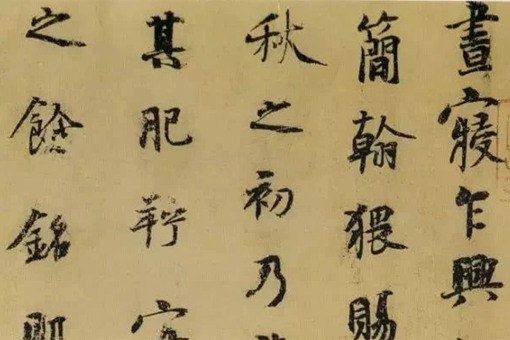 晝寢乍興
簡翰猥賜
秋之初乃
其肥羜
之餘銘肌